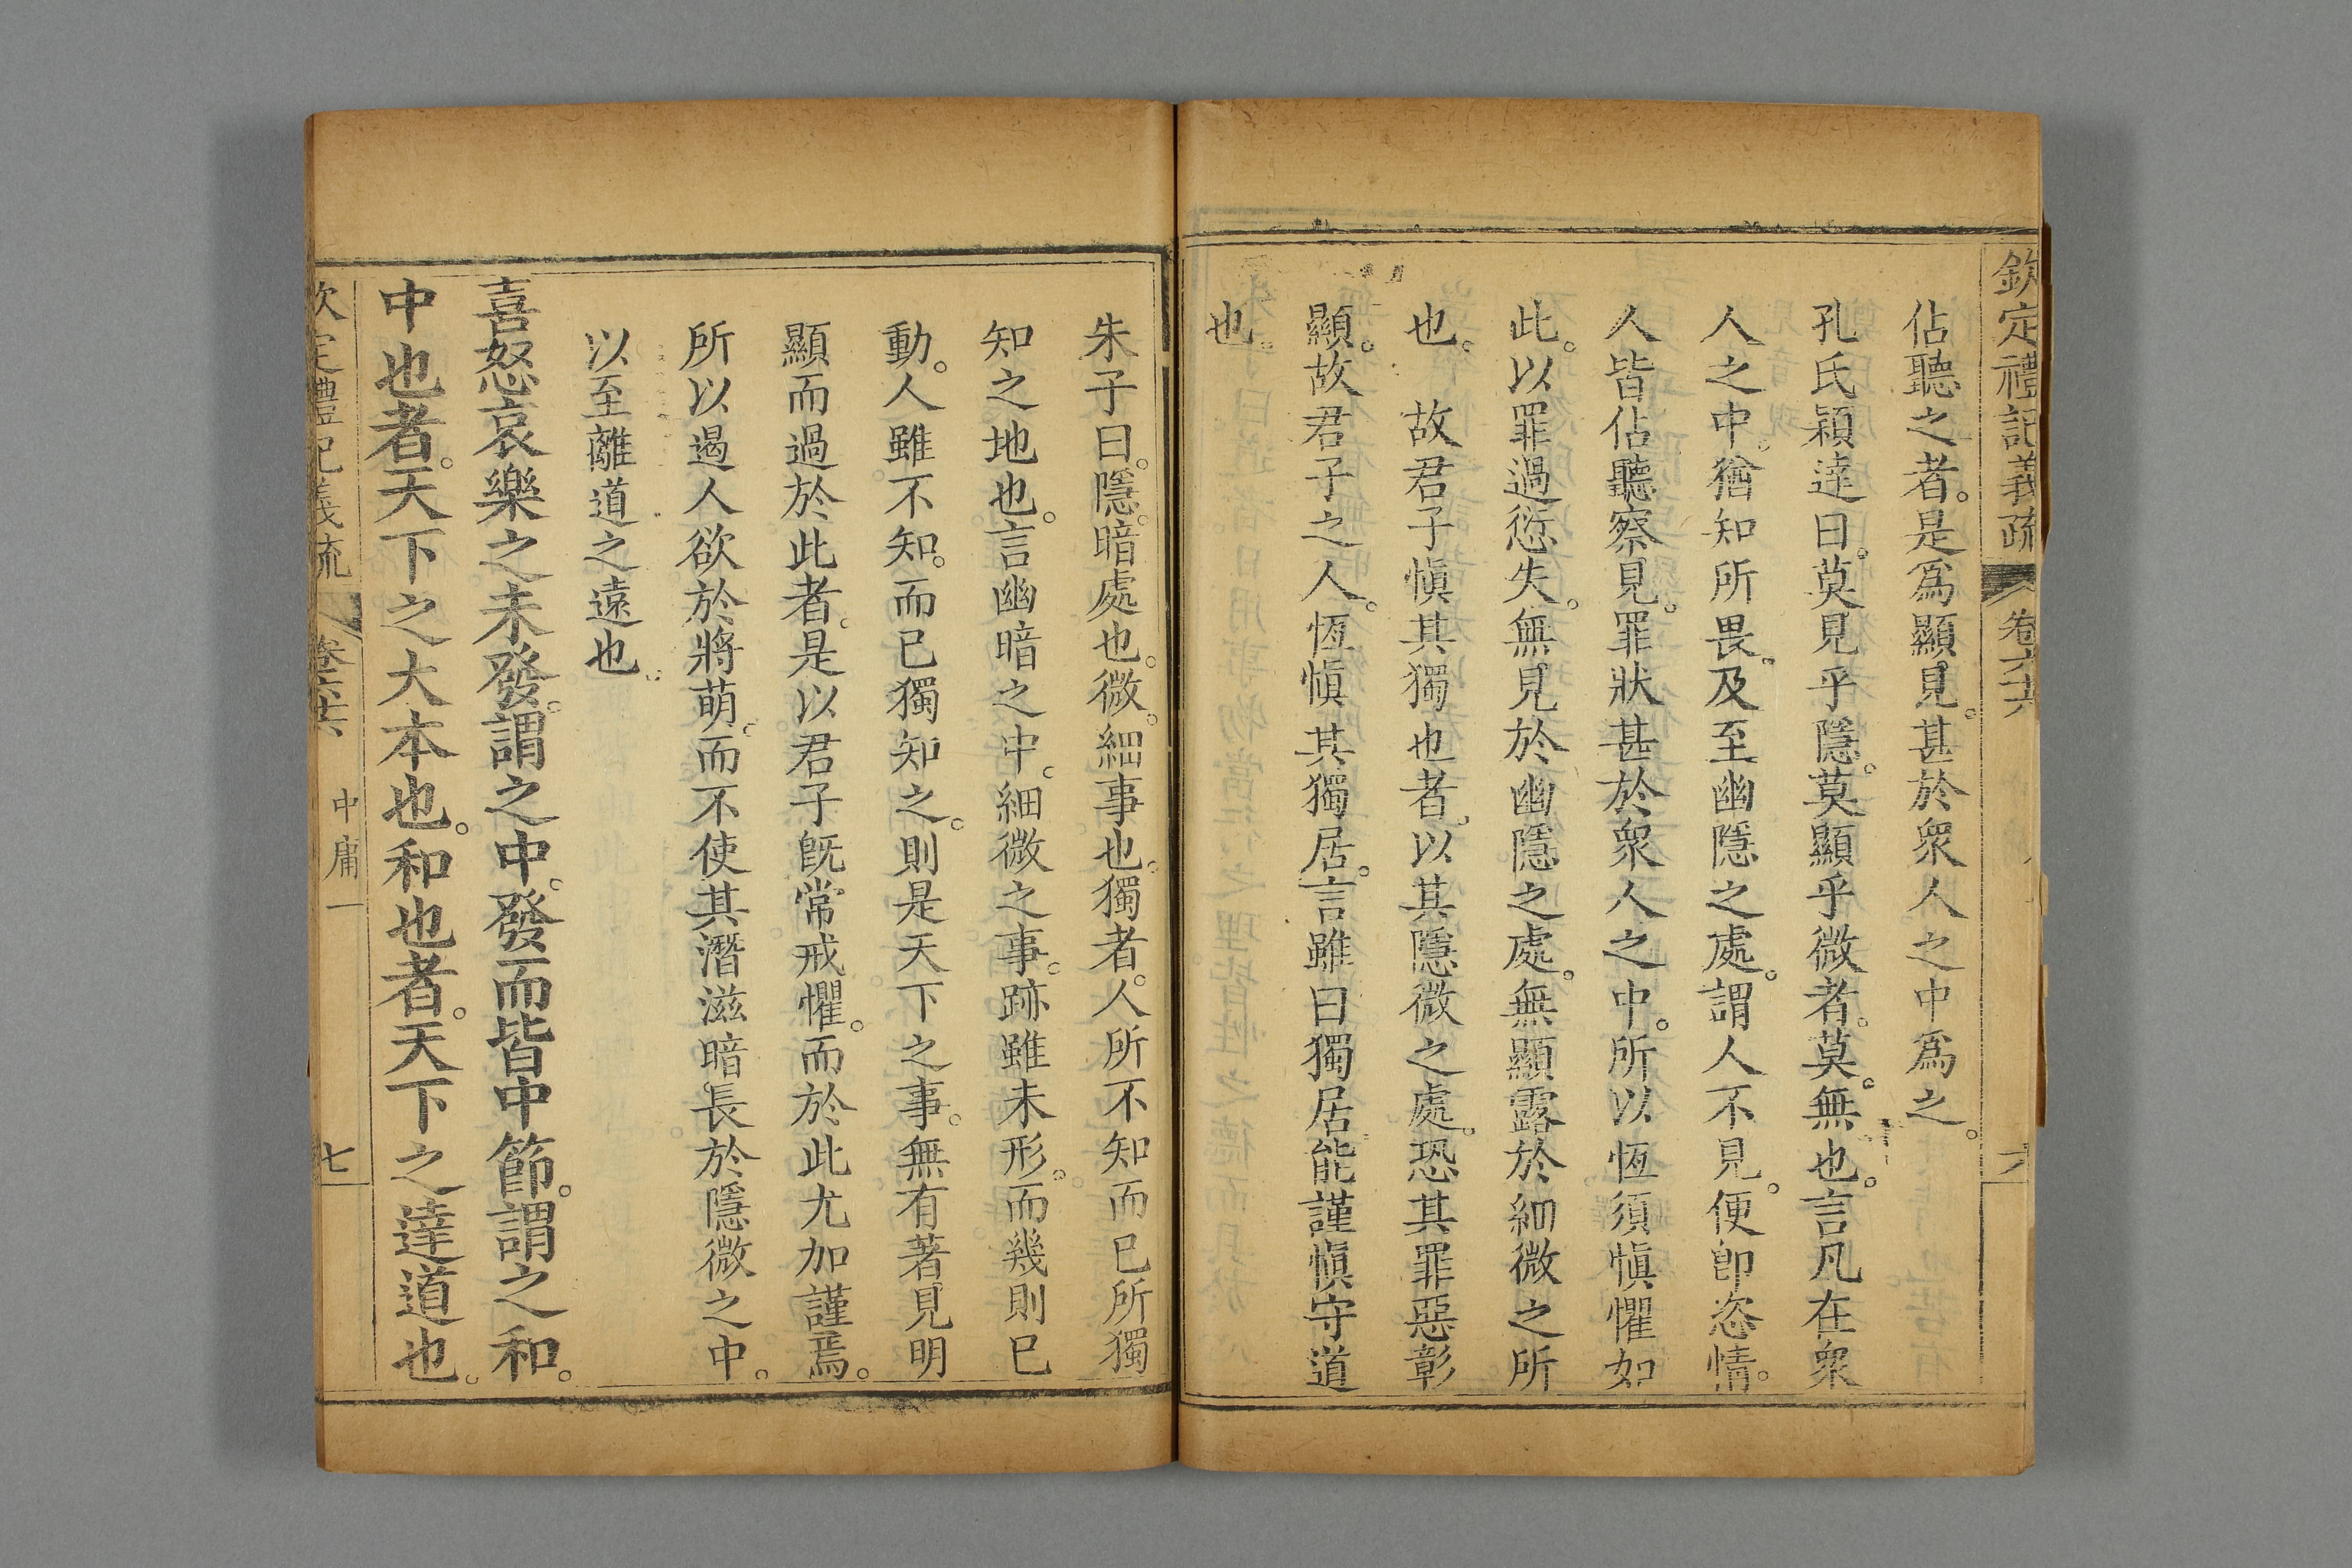 欽定禮記義疏 卷六十六 六
佔聽之者。是爲顯見。甚於衆人之中爲之。
孔氏穎達曰。莫見乎隱。莫顯乎微者。莫。無也。言凡在衆
人之中。猶知所畏。及至幽隱之處。謂人不見。便卽恣情。
人皆佔聽察見。罪狀甚於衆人之中。所以恆須愼懼如
此。以罪過愆失。無見於幽隱之處。無顯露於細微之所
也。 故君子愼其獨也者。以其隱微之處。恐其罪惡彰
顯。故君子之人。恆愼其獨居。言雖曰獨居。能謹愼守道
也。
朱子曰。隱。暗處也。微。細事也。獨者。人所不知而已所獨
知之地也。言幽暗之中。細微之事。跡雖未形。而幾則已
動。人雖不知。而已獨知之。則是天下之事。無有著見明
顯而過於此者。是以君子旣常戒懼。而於此尤加謹焉。
所以遏人欲於將萌。而不使其潛滋暗長於隱微之中。
以至離道之遠也。
喜怒哀樂之未發。謂之中。發而皆中節。謂之和。
中也者。天下之大本也。和也者。天下之達道也。
欽定禮記義疏 卷六十六 中庸一 七